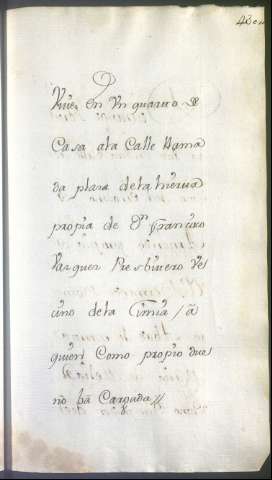 Vive en un quarto de
Casa a la Calle llama
da plaza de la hierva
propia de Dn Francisco
Vazquez Presbitero Ve
cino de la
quien como propio due
no ba Cargada //